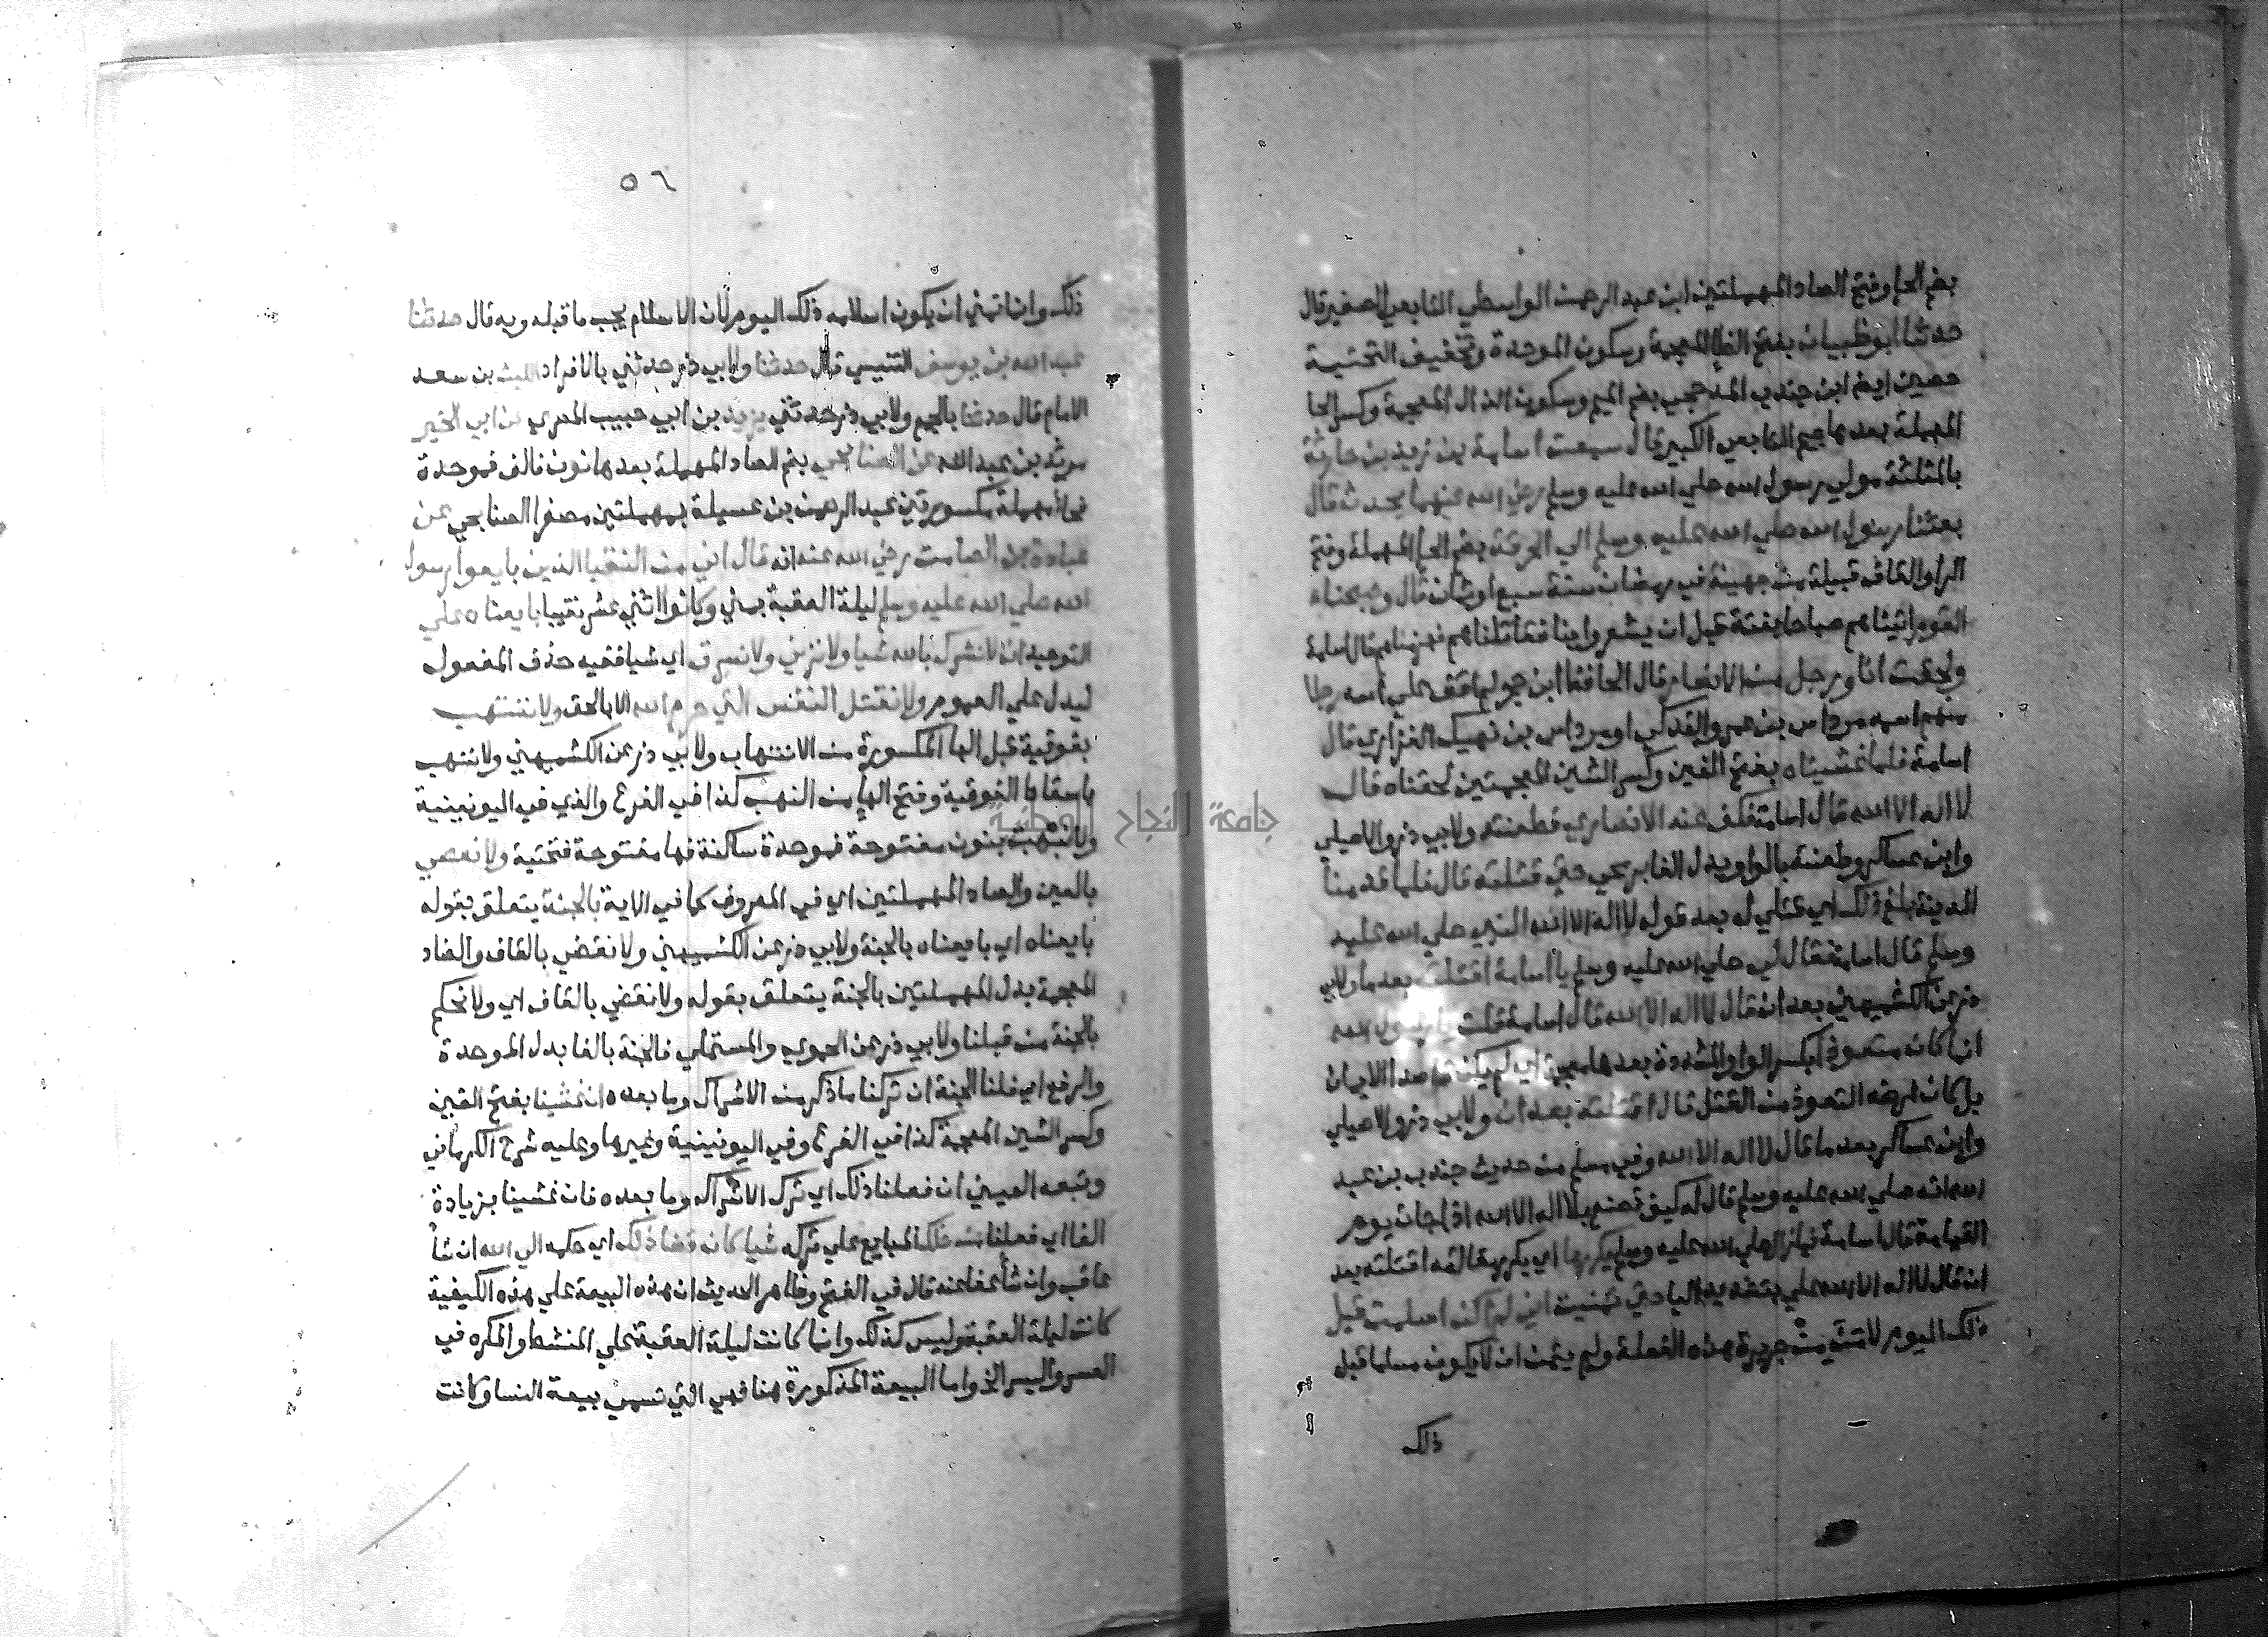 بضم الحا وفتح الصاد المهملتين ابن عبد الرحمن الواسطي التابعي الصغير قال
حدثنا ابو ظبيان بفتح الظا المعجمة وسكون الموحدة وتخفيف التحتية
حصين ايضا ابن جندب المذحجي بفتح الميم وسكون الذال المعجمة وكسر الحا
المهملة بعدها جيم التابعي الكبير قال سمعت اسامة بن زيد بن حارثة
بالمثلثة مولي رسول الله صلي الله عليه وسلم رضي الله عنهما يحدث قال
بعثنا رسول الله صلي الله عليه وسلم الي الحرقة بضم الحا المهملة وفتح
الرا والقاف قبيلة من جهينة في رمضان سنة سبع او ثمان قال وصبحنا
القوم اتيناهم صباحا بغتة قبل ان يشعروا بنا فقاتلناهم فهزمناهم قال اسامة
ولحقت انا ورجل من الانصار قال الحافظ ابن حجر لم اقف علي اسمه رجلا
منهم اسمه مرداس بن عمرو الفدكي او مرداس بن نهيك الفزاري قال
اسامة فلما غشيناه بفتح الغين وكسر الشين المعجمتين لحقناه قال
لا اله الا الله قال اسامة فكف عنه الانصاري فطعنته ولابي ذر والاصيلي
وابن عساكر وطعنته بالواو بدل الفا برمحي حتي قتلته قال فلما قدمنا
المدينة بلغ ذلك اي قتلي له بعد قوله لا اله الا الله النبي صلي الله عليه
وسلم قال اسامة فقال لي صلي الله عليه وسلم يا اسامة اقتلته بعد ما ولابي
ذر عن الكشميهني بعد ان قال لا اله الا الله قال اسامة قلت يا رسول الله
انما كان متعوذا بكسر الواو المشددة بعدها معجمة اي لم يكن قاصدا الايمان
بل كان غرضه التعوذ من القتل قال اقتلته بعد ان ولابي ذر والاصيلي
وابن عساكر بعد ما قال لا اله الا الله وفي مسلم من حديث جندب بن عبد
الله انه صلي الله عليه وسلم قال له كيف تصنع بلا اله الا الله اذا جات يوم
القيامة قال اسامة فما زال صلي الله عليه وسلم يكررها اي يكرر مقالته اقتلته بعد
ان قال لا اله الا الله علي بتشديد اليا حتي تمنيت اني لم اكن اسلمت قبل
ذلك اليوم لا من جريرة هذه الفعلة ولم يتمن ان لا يكون مسلما قبل
ذلك
٥٦
ذلك وانما تمني ان يكون اسلامه ذلك اليوم لان الاسلام يجب ما قبله وبه قال حدثنا
عبد الله بن يوسف التنيسي قال حدثنا ولابي ذر حدثني بالافراد الليث بن سعد
الامام قال حدثنا بالجمع ولابي ذر حدثني يزيد بن ابي حبيب المصري عن ابي الخير
مرثد بن عبد الله عن الصنابحي بضم الصاد المهملة بعدها نون فالف فموحدة
فحا مهملة مكسورتين عبد الرحمن بن عسيلة بمهملتين مصغرا الصنابحي عن
عبادة بن الصامت رضي الله عنه انه قال اني من النقبا الذين بايعوا رسول
الله صلي الله عليه وسلم ليلة العقبة بمني وكانوا اثني عشر نقيبا بايعناه علي
التوحيد ان لا نشرك بالله شيا ولا نزني ولا نسرق اي شيا ففيه حذف المفعول
ليدل علي العموم ولا نقتل النفس التي حرم الله الا بالحق ولا ننتهب
بفوقية قبل الها المكسورة من الانتهاب ولابي ذر عن الكشميهني ولا ننهب
باسقاط الفوقية وفتح الها من النهب كذا في الفرع والذي في اليونينية
ولا نبهت بنون مفتوحة فموحدة ساكنة فها مفتوحة فتحتية ولا نعصي
بالعين والصاد المهملتين اي في المعروف كما في الاية بالجنة يتعلق بقوله
بايعناه اي بايعناه بالجنة ولابي ذر عن الكشميهني ولا نقضي بالقاف والضاد
المعجمة بدل المهملتين بالجنة يتعلق بقوله ولا نقضي بالقاف اي ولا نحكم
بالجنة من قبلنا ولابي ذر عن الحموي والمستملي فالجنة بالفا بدل الموحدة
والرفع اي فلنا الجنة ان تركنا ما ذكر من الاشراك وما بعده ان غشينا بفتح الغين
وكسر الشين المعجمة كذا في الفرع وفي اليونينية وغيرها وعليه شرح الكرماني
وتبعه العيني ان فعلنا ذلك اي ترك الاشراك وما بعده فان غشينا بزيادة
الفا اي فعلنا من ذلك المبايع علي تركه شيا كان قضا ذلك اي حكمه الي الله ان شا
عاقب وان شا عفا عنه قال في الفتح وظاهر الحديث ان هذه البيعة علي هذه الكيفية
كانت ليلة العقبة وليس كذلك وانما كانت ليلة العقبة علي المنشط والمكره في
العسر واليسر الخ واما البيعة المذكورة هنا فهي التي تسمي بيعة النسا وكانت
جامعة النجاح الوطنية